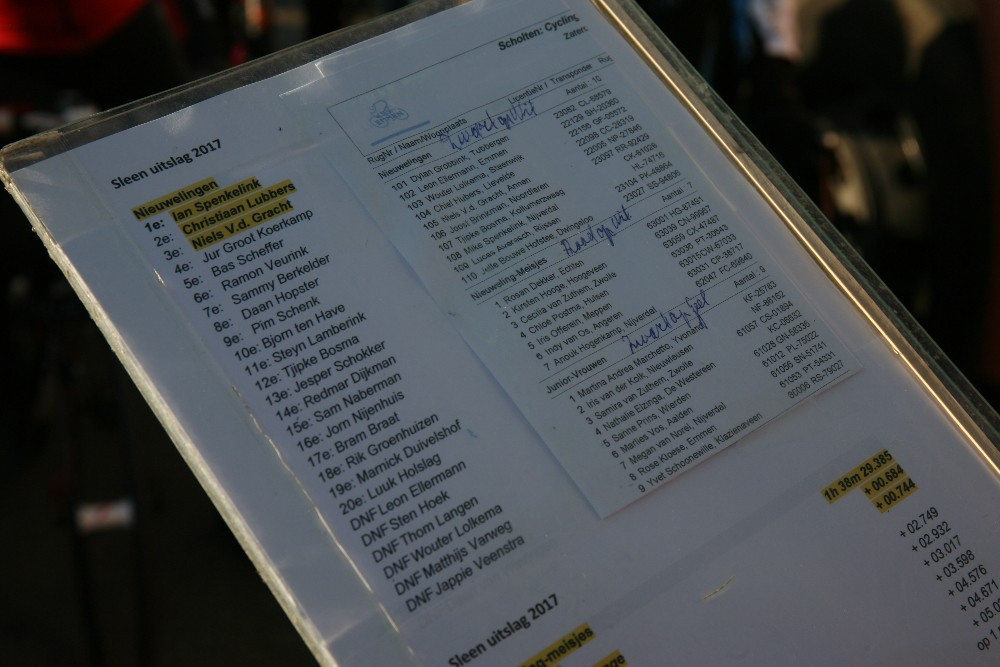 Sleen uitslag 2017
Nieuwelingen
1e: Ian Spenkelink
2e: Christiaan Lubbers
3e: Niels V.d. Gracht
4e: Jur Groot Koerkamp
5e: Bas Scheffer
6e: Ramon Veurink
7e: Sammy Berkelder
8e: Daan Hopster
9e: Pim Schenk
10e: Bjorn ten Have
11e: Steyn Lamberink
12e: Tjipke Bosma
13e: Jesper Schokker
14e: Redmar Dijkman
15e: Sam Naberman
16e: Jorn Nijenhuis
17e: Bram Braat
18e: Rik Groenhuizen
19e: Marnick Duivelshof
20e: Luuk Holslag
DNF Leon Ellermann
DNF Sten Hoek
DNF Thom Langen
DNF Wouter Lolkema
DNF Matthijs Varweg
DNF Jappie Veenstra
Scholten: Cycling
Zater
RugNr / Naam/Woonplaats Licentienr / Transponder Rug
Nieuwelingen Aantal : 10
101 Dylan Grobbink, Tubbergen 23082 CL-58579
102 Leon Ellermann, Emmen 22129 SH-20365
103 Wouter Lolkema, Steenwijk
104 Chiel Huberts, Lievelde
105 Niels V.d. Gracht, Annen 22005 NP-27846
106 Joost Brinkman, Noordlaren
107 Tjipke Bosma, Kollumerzwaag
108 Mike Spenkelink, Nijverdal
109 Lucas Averesch, Rijssen 23104 PK-46664
110 Jelle Bouwe Hofstee, Dwingeloo
Nieuweling-Meisjes Aantal : 7
1 Rosan Dekker, Echten 63001 HG-67491
2 Kirsten Hooge, Hoogeveen
3 Cecilia van Zuthem, Zwolle 63009 CX-47487
4 Chloe Postma, Hulsen
5 Iris Offerein, Meppen 63015 CW-67033
6 Indy van Os, Angeren 63031 CP-38717
7 Anouk Hogenkamp, Nijverdal 62047 FC-69840
Junior-Vrouwen Aantal : 9
1 Martina Andrea Marchetto, Yvonand KF-25783
2 Iris van der Kolk, Nieuwleusen NF-86162
3 Samira van Zuthem, Zwolle 61057 CS-01894
4 Nathalie Elzinga, De Westereen KC-06632
5 Sanne Prins, Wierden 61028 GN-58336
6 Marlies Vos, Aalden 61012 PL-75022
7 Megan van Norel, Nijverdal 61056 SN-51741
8 Rose Kloese, Emmen 61053 PT-54331
9 Yvet Schoonewille, Klazienaveen 80056 RS-79027
1h 38m 29.385
+ 00.684
+ 00.744
+ 02.749
+ 02.932
+ 03.017
+ 03.598
+ 04.576
+ 04.671
+ 05.0
op 1
Sleen uitslag 2017
g-meisjes